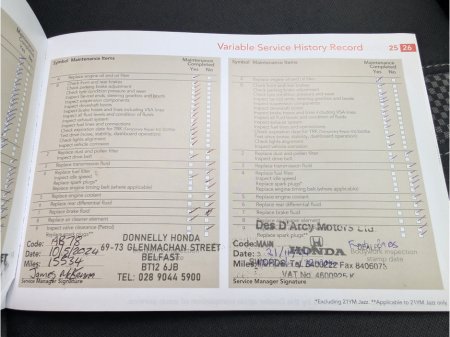 Variable Service History Record 25 26
Symbol Maintenance Items Maintenance Completed Yes No
Replace engine oil and oil filter
Check front and rear brakes
Check parking brake adjustment
Check tyre condition pressure and wear
Inspect tie-rod ends, steering gearbox and boots
Inspect suspension components
Inspect driveshaft boots
Inspect brake hoses and lines including VSA lines
Inspect all fluid levels and condition of fluids
Inspect exhaust system
Inspect fuel lines and connections
Check expiration date for TRK (Temporary Repair Kit) bottle
Test drive (noise, stability, dashboard operation)
Check lights alignment
Inspect vehicle corrosion
2 Replace dust and pollen filter
Inspect drive belt
3 Replace transmission fluid
4 Replace fuel filter
Inspect idle speed
Replace spark plugs*
Replace engine timing belt (where applicable)
5 Replace engine coolant
6 Replace rear differential fluid
7 Replace brake fluid
8 Replace air cleaner element
9 Inspect valve clearance (Petrol)
Code: AB78
Date: 10/5/2024
Miles: 15534
Service Manager Signature
DONNELLY HONDA
69-73 GLENMACHAN STREET
BELFAST
BT12 6JB
TEL: 028 9044 5900
Symbol Maintenance Items Maintenance Completed Yes No
Replace engine oil and oil filter
Check front and rear brakes
Check parking brake adjustment
Check tyre condition pressure and wear
Inspect tie-rod ends, steering gearbox and boots
Inspect suspension components
Inspect driveshaft boots
Inspect brake hoses and lines including VSA lines
Inspect all fluid levels and condition of fluids
Inspect exhaust system
Inspect fuel lines and connections
Check expiration date for TRK (Temporary Repair Kit) bottle
Test drive (noise, stability, dashboard operation)
Check lights alignment
Inspect vehicle corrosion
2 Replace dust and pollen filter
Inspect drive belt
3 Replace transmission fluid
4 Replace fuel filter
Inspect idle speed
Replace spark plugs*
Replace engine timing belt (where applicable)
5 Replace engine coolant
6 Replace rear differential fluid
7 Replace brake fluid
8 Replace air cleaner element
Des D'Arcy Motors Ltd.
Code: MAIN
HONDA
Date:
Bodywork inspection
stamp date
Miles:
Tel 8400222 Fax 8406073
VAT No.
Service Manager Signature
*Excluding 21YM Jazz. **Applicable to 21YM Jazz only